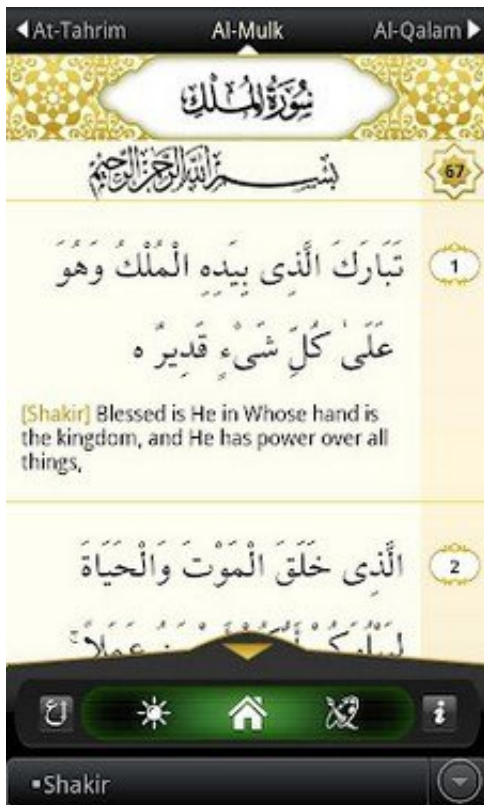 At-Tahrim Al-Mulk Al-Qalam
سُورَةُ المُلْكِ
بِسْمِ اللَّهِ الرَّحْمَٰنِ الرَّحِيمِ 67
تَبَارَكَ الَّذِى بِيَدِهِ الْمُلْكُ وَهُوَ 1
عَلَىٰ كُلِّ شَىْءٍ قَدِيرٌ ه
[Shakir] Blessed is He in Whose hand is
the kingdom, and He has power over all
things,
الَّذِى خَلَقَ الْمَوْتَ وَالْحَيَاةَ 2
عَمَلًا ۚ
i
▪Shakir